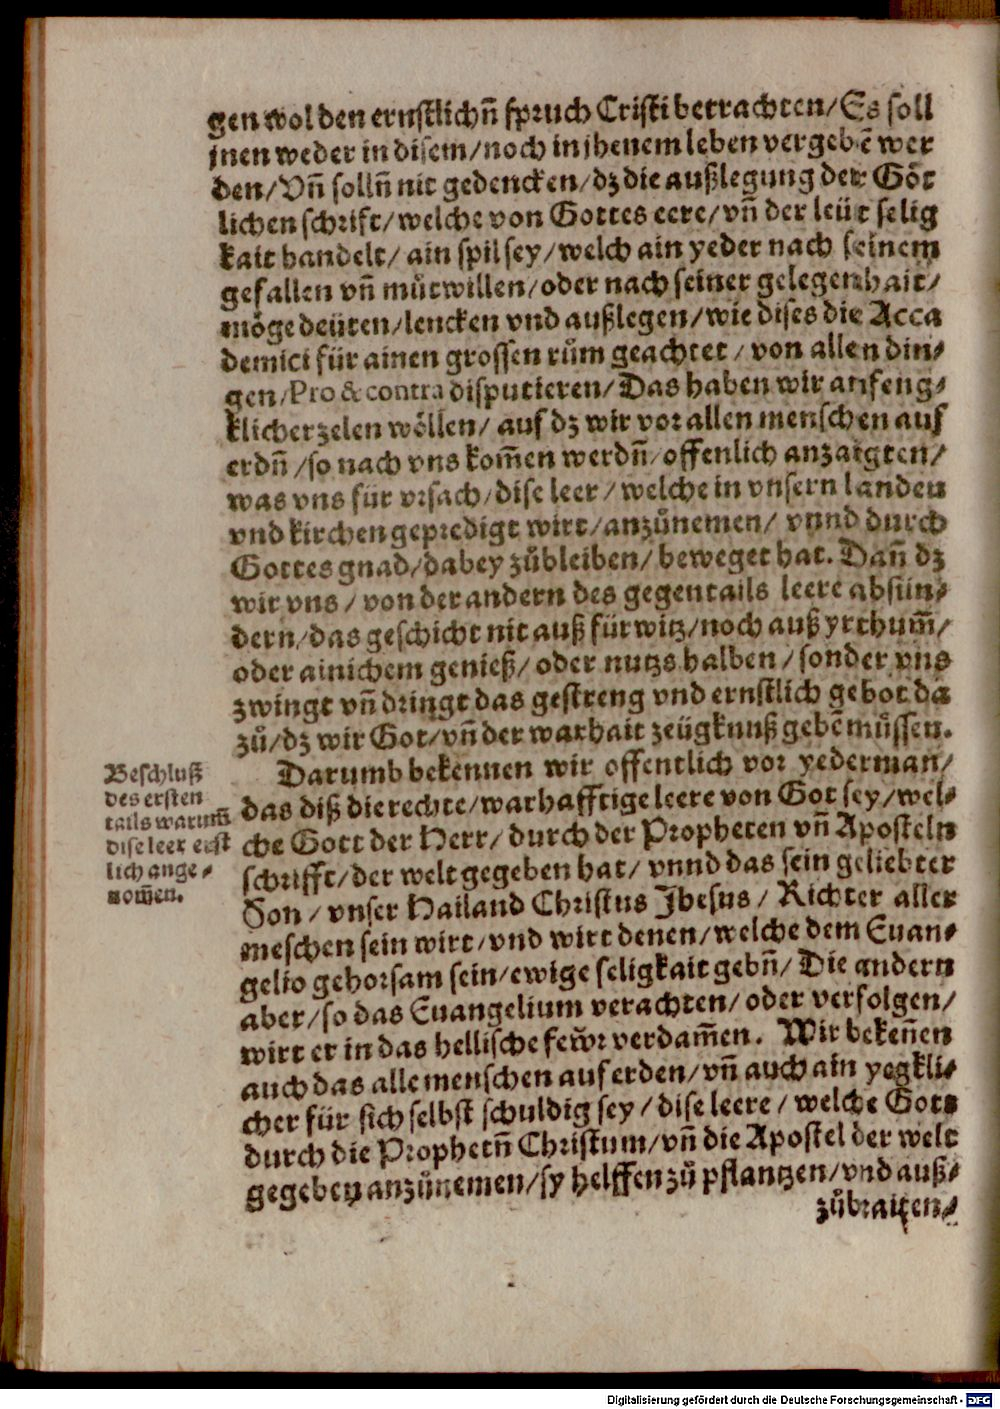 gen wol den ernstlichñ spruch Cristi betrachten/Es soll
jnen weder in disem/noch in jhenem leben vergebē wer
den/Vñ sollñ nit gedencken/dz die außlegung der Göt
lichen schrift/welche von Gottes eere/vñ der leüt selig
kait handelt/ ain spil sey/welch ain yeder nach seinem
gefallen vñ můtwillen/oder nach seiner gelegenhait/
möge deüten/lencken vnd außlegen/wie dises die Acca
demici für ainen grossen rům geachtet/von allen din⸗
gen/Pro & contra disputieren/Das haben wir anfeng⸗
klich erzelen wöllen/ auf dz wir vor allen menschen auf
erdñ/so nach vns kom̄en werdñ/offenlich anzaigten/
was vns für vrsach/dise leer/welche in vnsern landen
vnd kirchen gepredigt wirt/anzůnemen/ vnnd durch
Gottes gnad/dabey zůbleiben/beweget hat. Dañ dz
wir vns/von der andern des gegentails leere absün⸗
dern/das geschicht nit auß fürwitz/noch auß yrthum̄/
oder ainichem genieß/oder nutzs halben/sonder vns
zwingt vñ dringt das gestreng vnd ernstlich gebot da
zů/dz wir Got/vñ der warhait zeügknuß gebē müssen.
Darumb bekennen wir offentlich vor yederman/
das diß die rechte/warhafftige leere von Got sey/wel⸗
che Gott der Herr/durch der Propheten vñ Aposteln
schrifft/der welt gegeben hat/ vnnd das sein geliebter
Son/vnser Hailand Christus Jhesus/ Richter aller
meschen sein wirt/vnd wirt denen/welche dem Euan⸗
gelio gehorsam sein/ewige seligkait gebñ/Die andern
aber/so das Euangelium verachten/oder verfolgen/
wirt er in das hellische fewr verdam̄en. Wir bekeñen
auch das alle menschen auf erden/vñ auch ain yegkli⸗
cher für sich selbst schuldig sey/dise leere/welche Gots
durch die Prophetñ Christum/vñ die Apostel der welt
gegeben anzůnemen/sy helffen zů pflantzen/vnd auß⸗
zůbraiten⸗
Beschluß
des ersten
tails warum̄
dise leer erst
lich ange⸗
nom̄en.
Digitalisierung gefördert durch die Deutsche Forschungsgemeinschaft - DFG